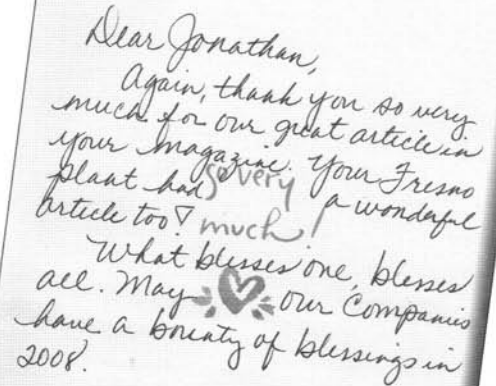 Dear Jonathan,
Again, thank you so very
much for our great article in
your magazine. Your Fresno
plant had a wonderful
article too!
so very
much!
What blesses one, blesses
all. May our Companies
have a bounty of blessings in
2008.